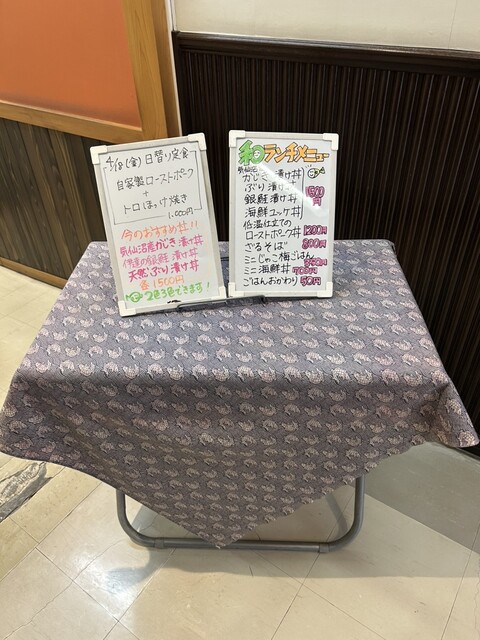 4/18(金)日替り定食
自家製ローストポーク
+
トロほっけ焼き
1.000円
今のおすすめ丼!!
気仙沼産かじき漬け丼
伊達の銀鮭漬け丼
天然ぶり漬け丼
各1500円
2色3色できます!
和ランチメニュー
気仙沼
かじき漬け丼
ぶり漬け丼
銀鮭漬け丼
海鮮ユッケ丼
1500円
低温仕立ての
ローストポーク丼 1200円
ざるそば 800円
ミニじゃこ梅ごはん
ミニ海鮮丼 700円
ごはんおかわり 50円